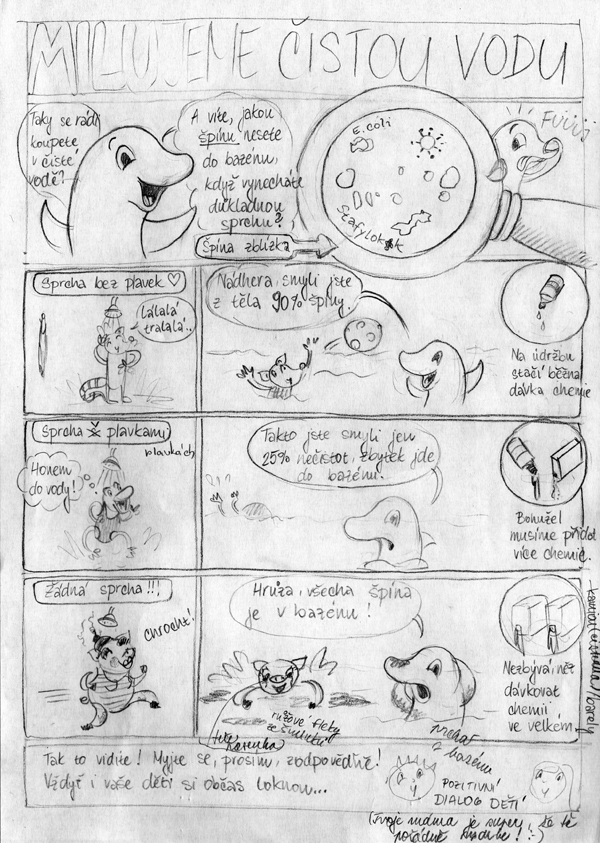 MILUJEME ČISTOU VODU
Taky se rádi
koupete
v čisté
vodě?
A víte, jakou
špínu nesete
do bazénu,
když vynecháte
důkladnou
sprchu?
Špína zblízka
E.coli
Stafylokok
Fujjj
Sprcha bez plavek ♡
Lálalá
tralalá..
Nádhera, smyli jste
z těla 90% špíny.
Na údržbu
stačí běžná
dávka chemie
Sprcha v plavkami
plavkách
Honem
do vody!
Takto jste smyli jen
25% nečistot, zbytek jde
do bazénu.
Bohužel
musíme přidat
více chemie.
Žádná sprcha!!!
Chrocht!
Hrůza, všecha špína
je v bazénu!
Nezbývá než
dávkovat
chemii
ve velkém
růžové fleky
ze
z bazénu
Tak to vidíte! Myjte se, prosím, zodpovědně!
Vždyť i vaše děti si občas loknou...
POZITIVNÍ
DIALOG DĚTÍ
(Tvoje máma je super, že tě
pořádně